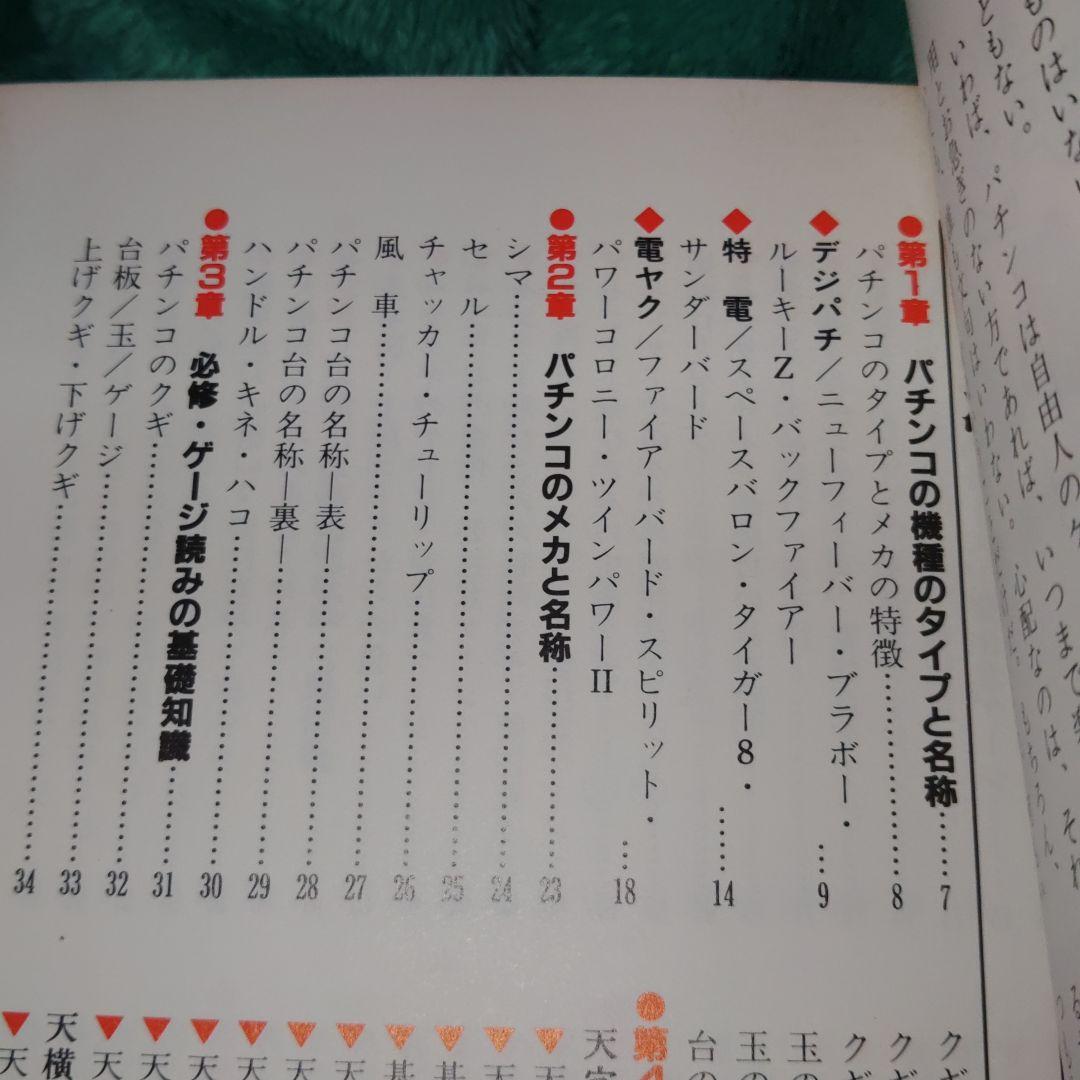 ものはいな
ともない。
いわば、パチンコは自由人の
いつまで
心配なのは、それ
もちろん、
●第1章 パチンコの機種のタイプと名称……7
パチンコのタイプとメカの特徴……8
◆デジパチ／ニューフィーバー・ブラボー・
ルーキーZ・バックファイアー…9
◆特 電／スペースバロン・タイガー8・
サンダーバード……14
◆電ヤク／ファイアーバード・スピリット・
パワーコロニー・ツインパワーII…18
●第2章 パチンコのメカと名称……23
シマ……24
セル……25
チャッカー・チューリップ……26
風 車……27
パチンコ台の名称―表―……28
パチンコ台の名称―裏―……29
ハンドル・キネ・ハコ……30
●第3章 必修・ゲージ読みの基礎知識……31
パチンコのクギ……32
台板／玉／ゲージ……33
上げクギ・下げクギ……34
クギ
クギ
クギ
玉の
玉の
台の
●第4
天穴
▼天
▼天
▼基
▼基
▼天
▼天
▼天
▼天
▼天
▼天
天横
▼天